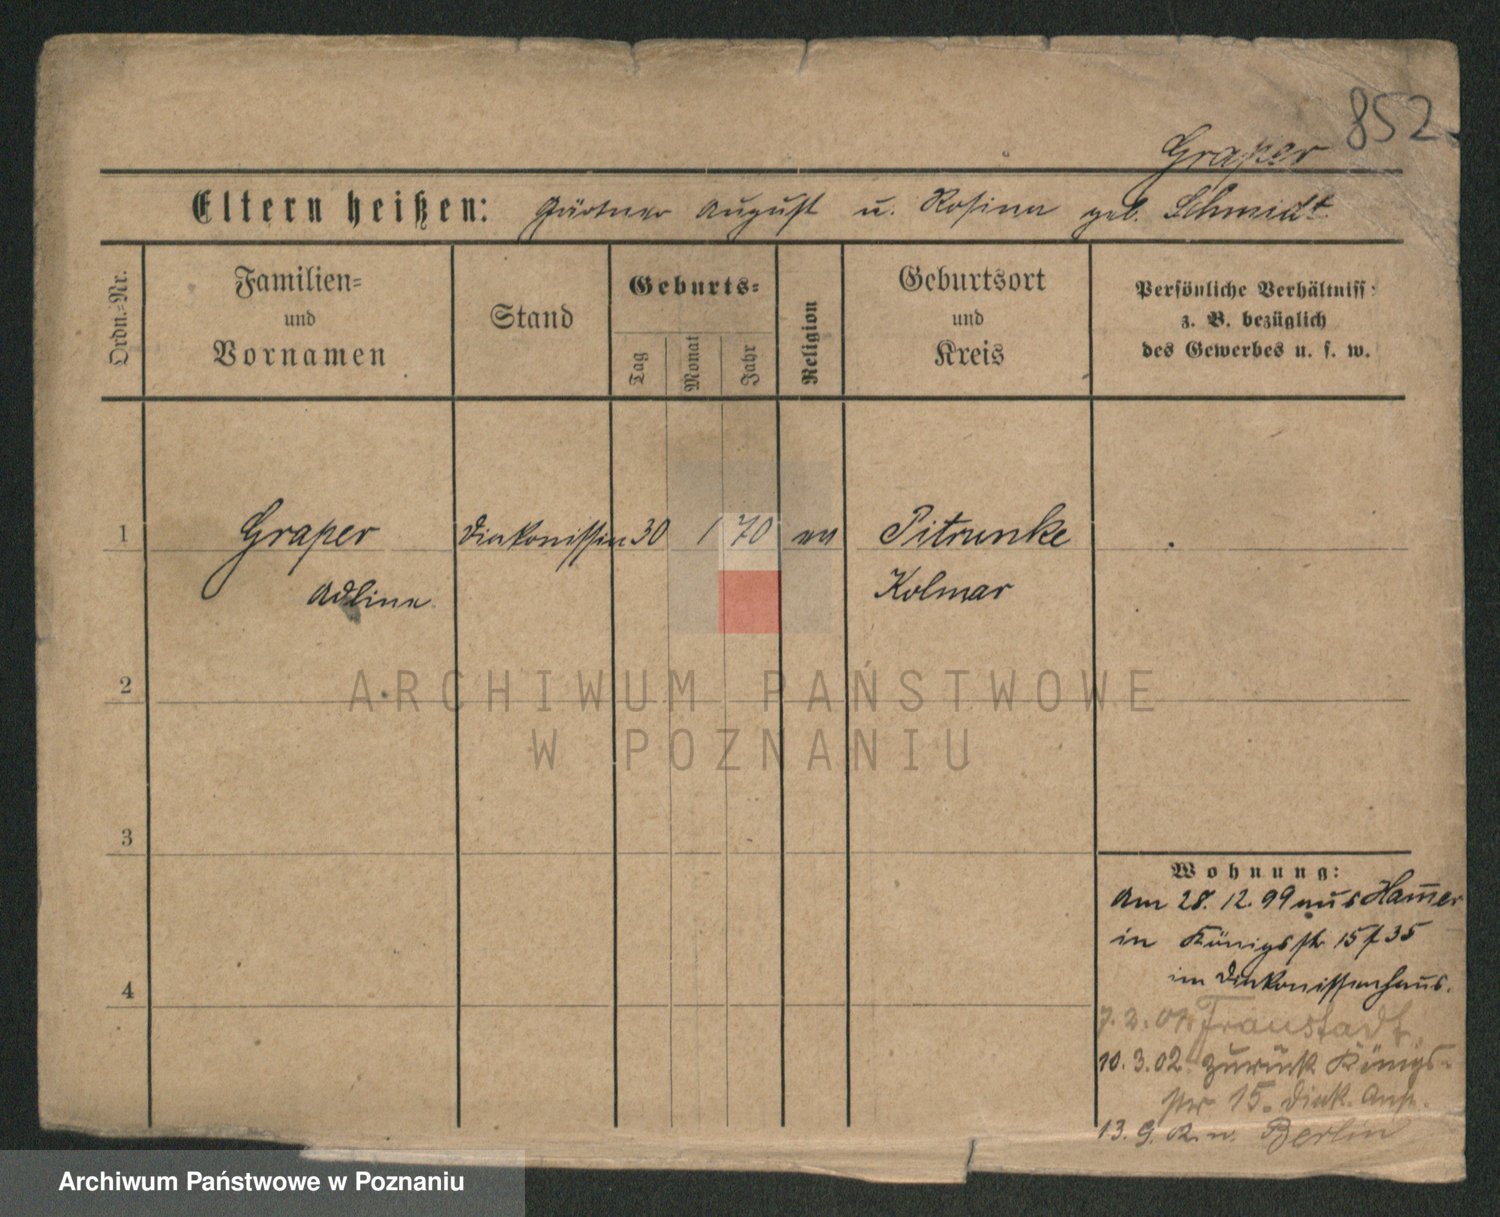 852
Graper
Eltern heißen: Gärtner August u. Rosina geb. Schmidt
Ordn.-Nr.
Familien- und Vornamen
Stand
Geburts-
Tag
Monat
Jahr
Religion
Geburtsort und Kreis
Persönliche Verhältniss: z. B. bezüglich des Gewerbes u. s. w.
1 Graper Diakonissin 30 1 70 ev Pitrunke
Adline Kolmar
2
3
4
Wohnung:
Am 28. 12. 99 aus Hamer
in Königsstr 15 f 35
im Diakonissenhaus.
7. 2. 01 Fraustadt
10. 3. 02. zurück Königs-
str 15. Diak. Anst.
13. 9. Berlin
ARCHIWUM PAŃSTWOWE
W POZNANIU
Archiwum Państwowe w Poznaniu